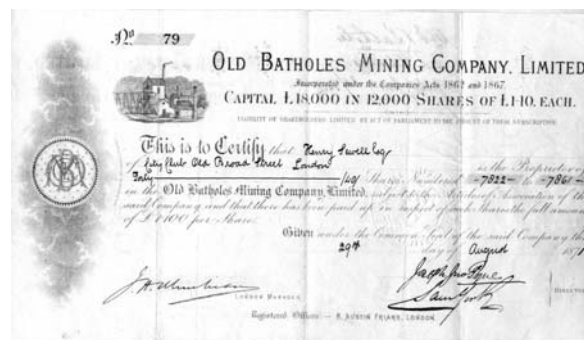 No 79
OLD BATHOLES MINING COMPANY, LIMITED
Incorporated under the Companies Acts 1862 and 1867.
CAPITAL £18,000 IN 12,000 SHARES OF £1-10. EACH.
LIABILITY OF SHAREHOLDERS LIMITED BY ACT OF PARLIAMENT TO THE AMOUNT OF THEIR SUBSCRIPTION
This is to Certify that Henry Sewell Esq
of City Club Old Broad Street London is the Proprietor of
Forty (40) Shares Numbered -7822- to -7861-
in the Old Batholes Mining Company, Limited, subject to the Articles of Association of the
said Company, and that there has been paid up in respect of such Shares the full amount
of £ per Share.
Given under the Common Seal of the said Company the
29th day of August 187
LONDON MANAGER
Registered Offices: — 8, AUSTIN FRIARS, LONDON.